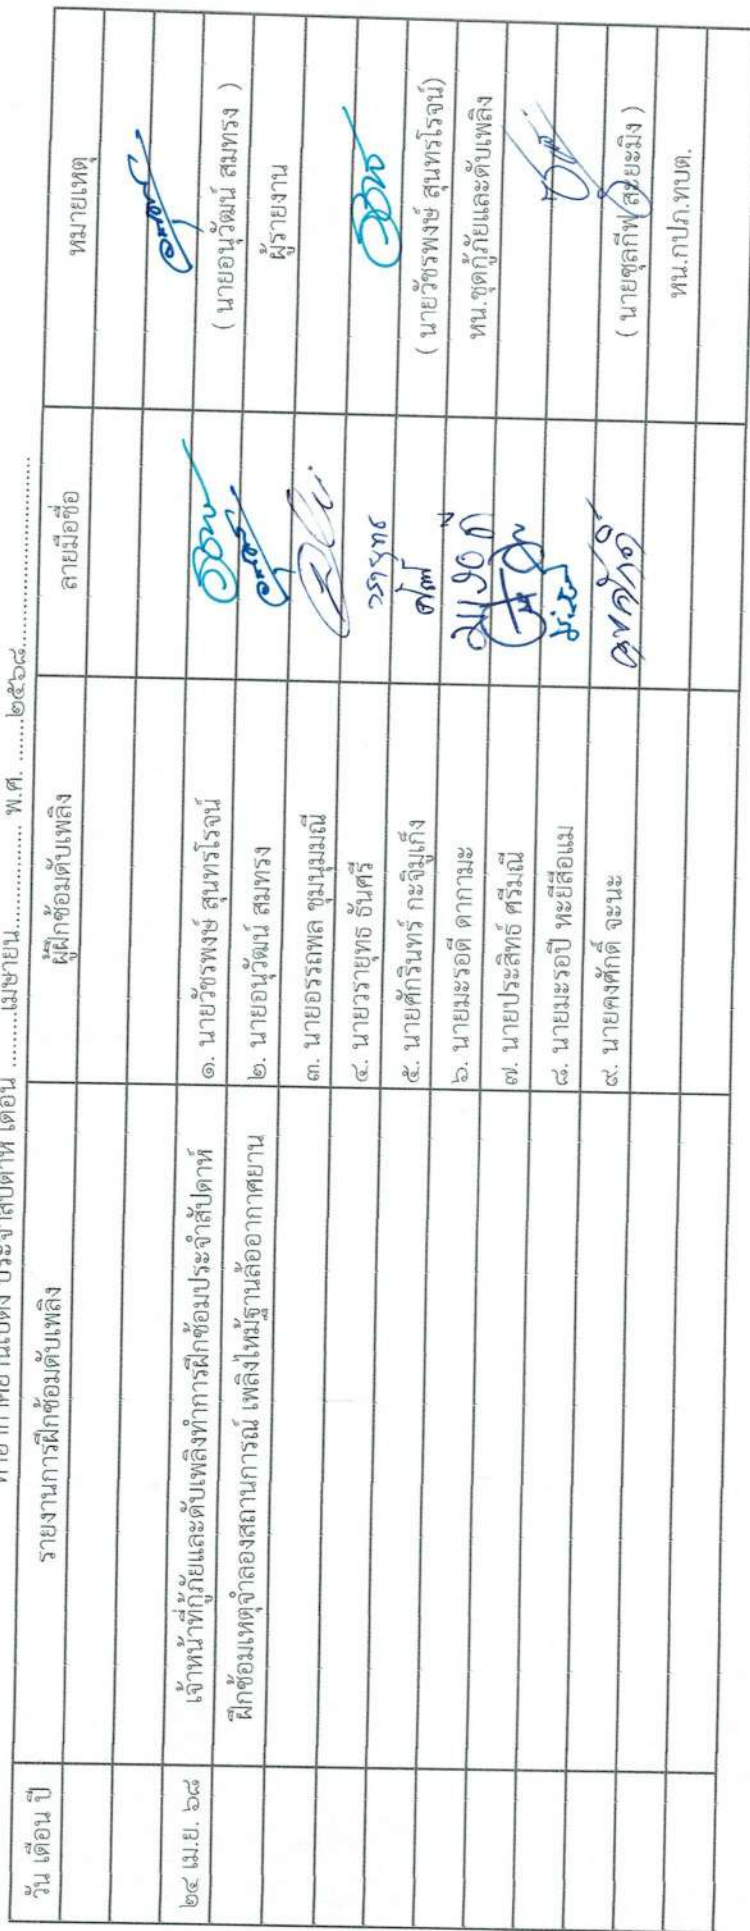 ท่าอากาศยานเบตง ประจำสัปดาห์ เดือน .........เมษายน.................. พ.ศ. .......๒๕๖๘.......................................
วัน เดือน ปี รายงานการฝึกซ้อมดับเพลิง ผู้ฝึกซ้อมดับเพลิง ลายมือชื่อ หมายเหตุ
๒๔ เม.ย. ๖๘ เจ้าหน้าที่กู้ภัยและดับเพลิงทำการฝึกซ้อมประจำสัปดาห์ ๑. นายวัชรพงษ์ สุนทรโรจน์ ( นายอนุวัฒน์ สมทรง )
ฝึกซ้อมเหตุจำลองสถานการณ์ เพลิงไหม้ฐานล้ออากาศยาน ๒. นายอนุวัฒน์ สมทรง ผู้รายงาน
๓. นายอรรถพล ชุมนุมมณี
๔. นายวรายุทธ ธันศรี วรายุทธ
๕. นายศักรินทร์ กะจิมูเก็ง ( นายวัชรพงษ์ สุนทรโรจน์)
๖. นายมะรอดี ดากามะ หน.ชุดกู้ภัยและดับเพลิง
๗. นายประสิทธิ์ ศรีมณี
๘. นายมะรอปี หะยีสือแม
๙. นายคงศักดิ์ จะนะ ( นายซุลกีฟ สะยะมิง )
หน.กปภ.ทบต.